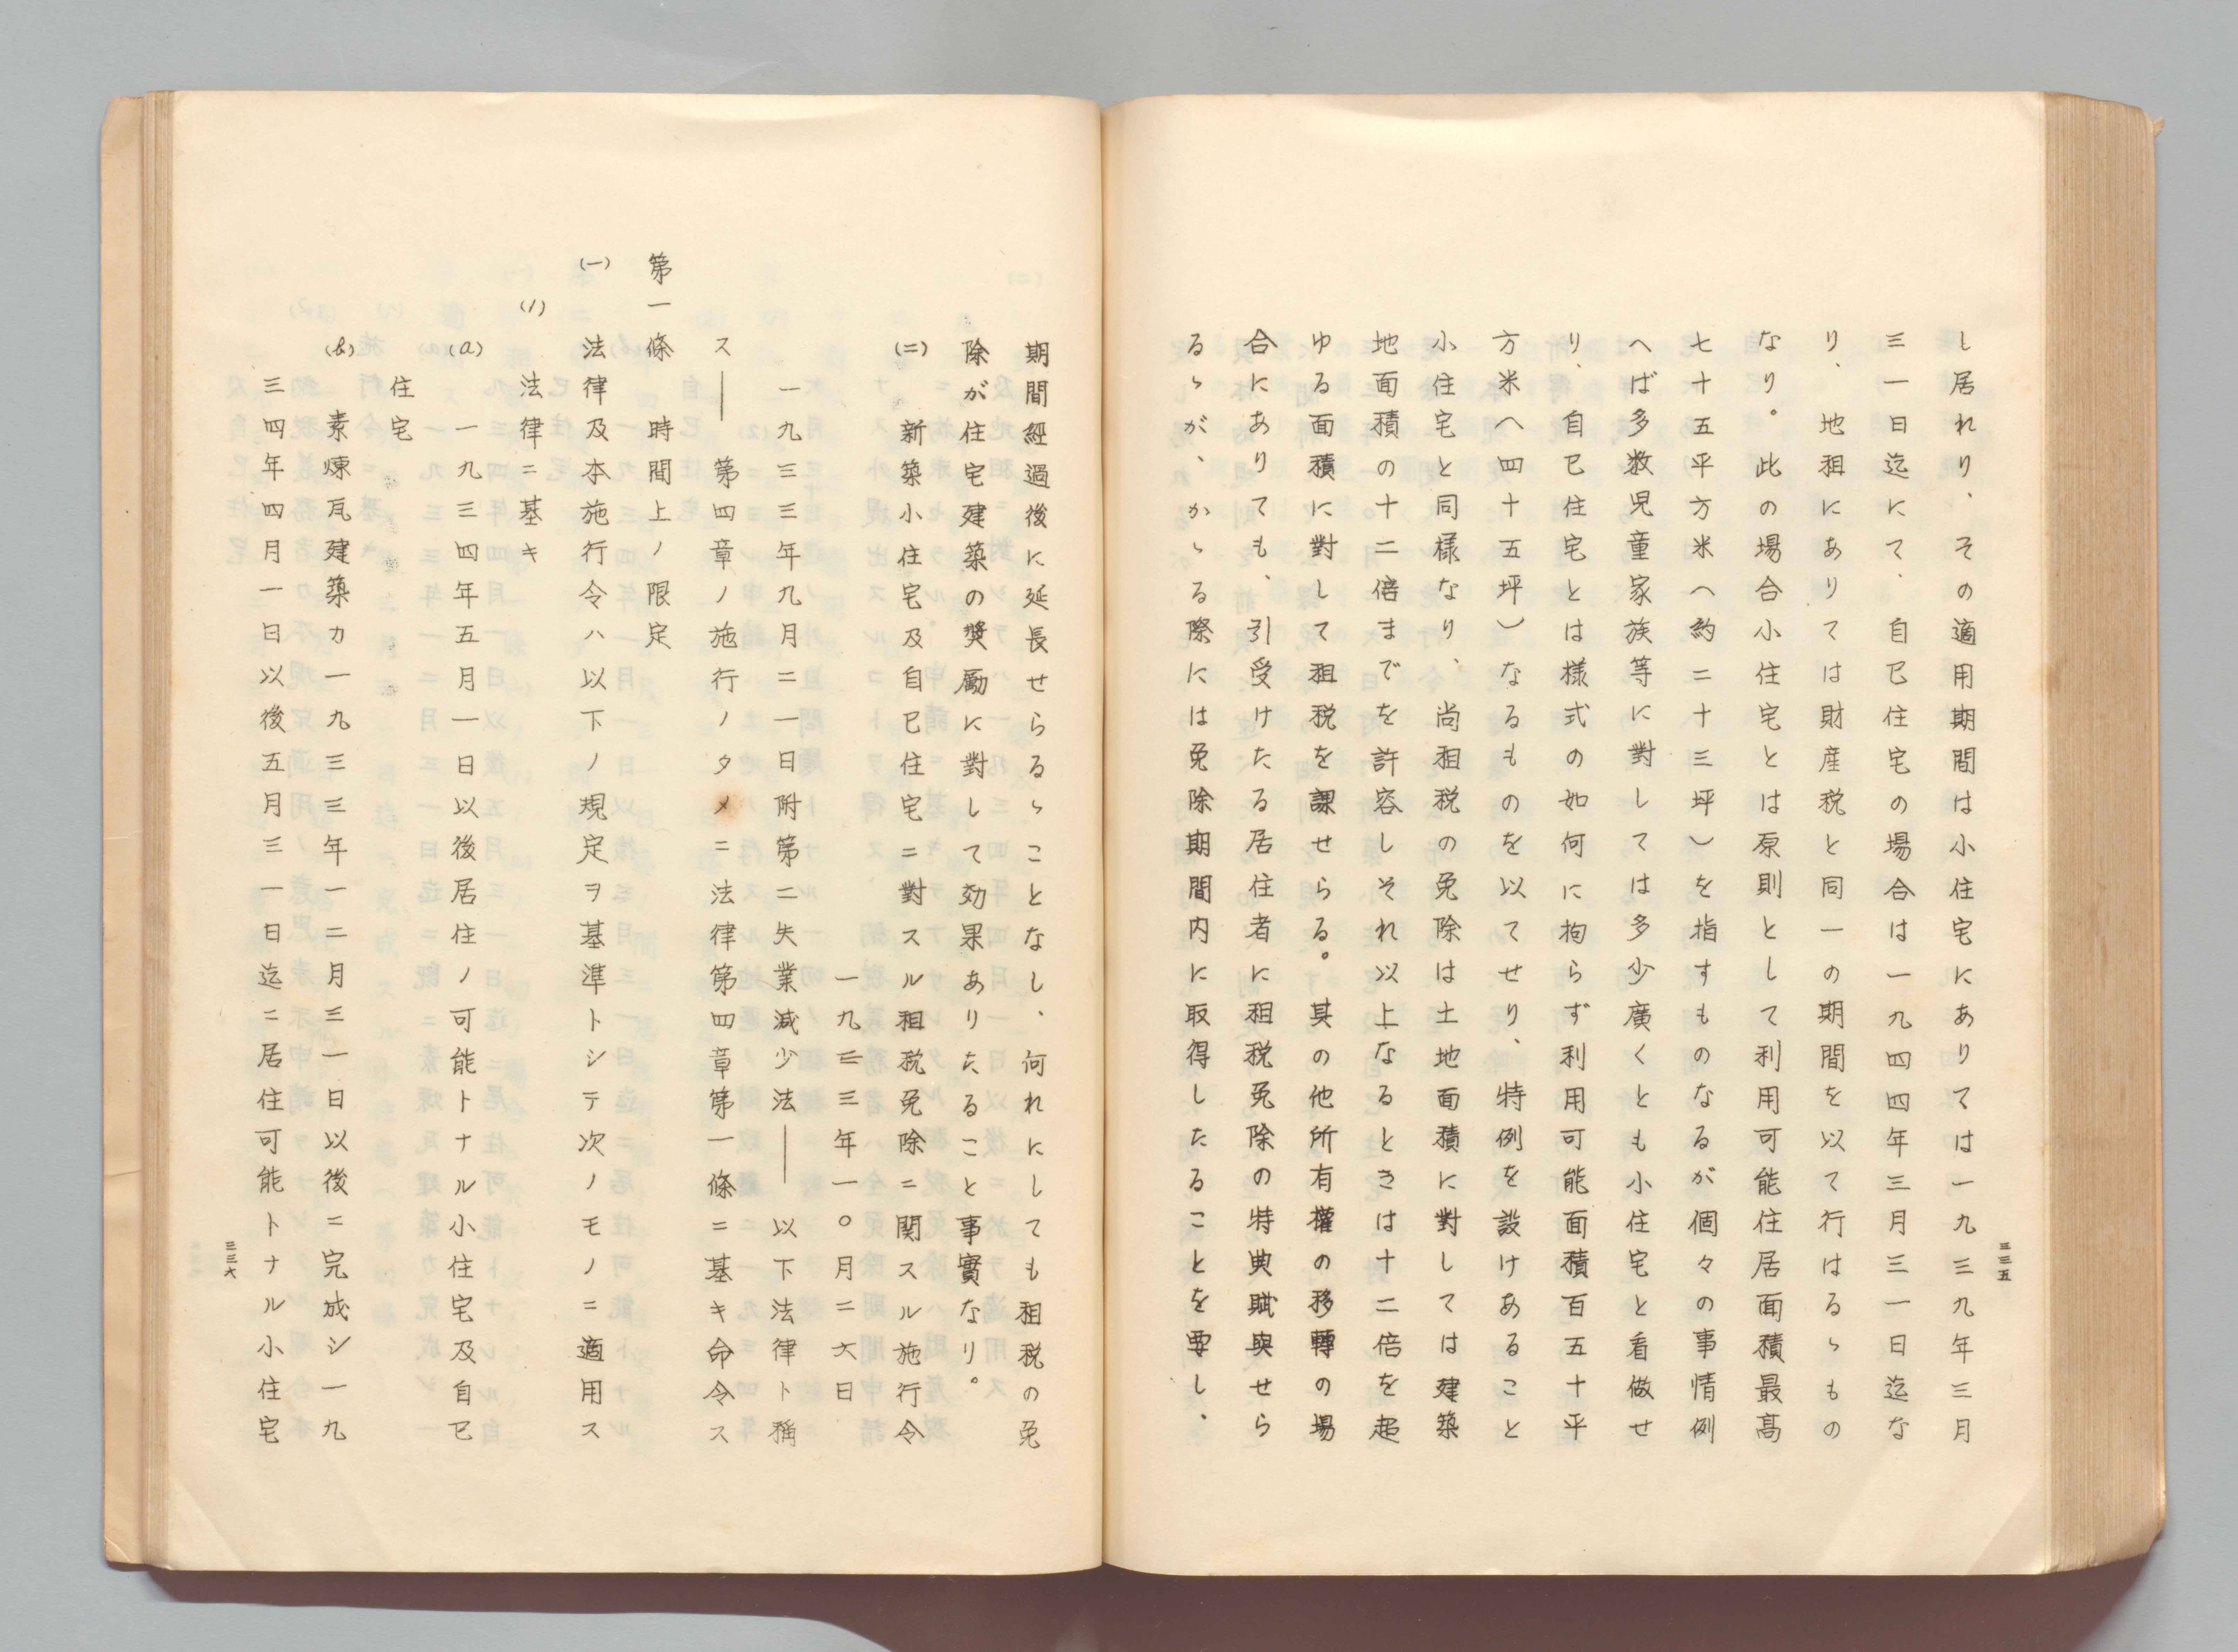 し居れり、その適用期間は小住宅にありては一九三九年三月
三一日迄にて、自己住宅の場合は一九四四年三月三一日迄な
り、地租にありては財産税と同一の期間を以て行はるゝもの
なり。此の場合小住宅とは原則として利用可能住居面積最高
七十五平方米（約二十三坪）を指すものなるが個々の事情例
へば多数児童家族等に對しては多少廣くとも小住宅と看做せ
り、自己住宅とは様式の如何に拘らず利用可能面積百五十平
方米（四十五坪）なるものを以てせり、特例を設けあること
小住宅と同様なり、尚租税の免除は土地面積に對しては建築
地面積の十二倍までを許容しそれ以上なるときは十二倍を超
ゆる面積に對して租税を課せらる。其の他所有權の移轉の場
合にありても、引受けたる居住者に租税免除の特典賦與せら
るゝが、かゝる際には免除期間内に取得したることを要し、
三三五
期間經過後に延長せらるゝことなし、何れにしても租税の免
除が住宅建築の奬勵に對して効果ありたること事實なり。
(二) 新築小住宅及自己住宅ニ對スル租税免除ニ関スル施行令
一九三三年一〇月二六日
一九三三年九月二一日附第二失業減少法――以下法律ト稱
ス――第四章ノ施行ノタメニ法律第四章第一條ニ基キ命令ス
第一條 時間上ノ限定
(一) 法律及本施行令ハ以下ノ規定ヲ基準トシテ次ノモノニ適用ス
(1) 法律ニ基キ
(a) 一九三四年五月一日以後居住ノ可能トナル小住宅及自己
住宅
(b) 素煉瓦建築カ一九三三年一二月三一日以後ニ完成シ一九
三四年四月一日以後五月三一日迄ニ居住可能トナル小住宅
三三六